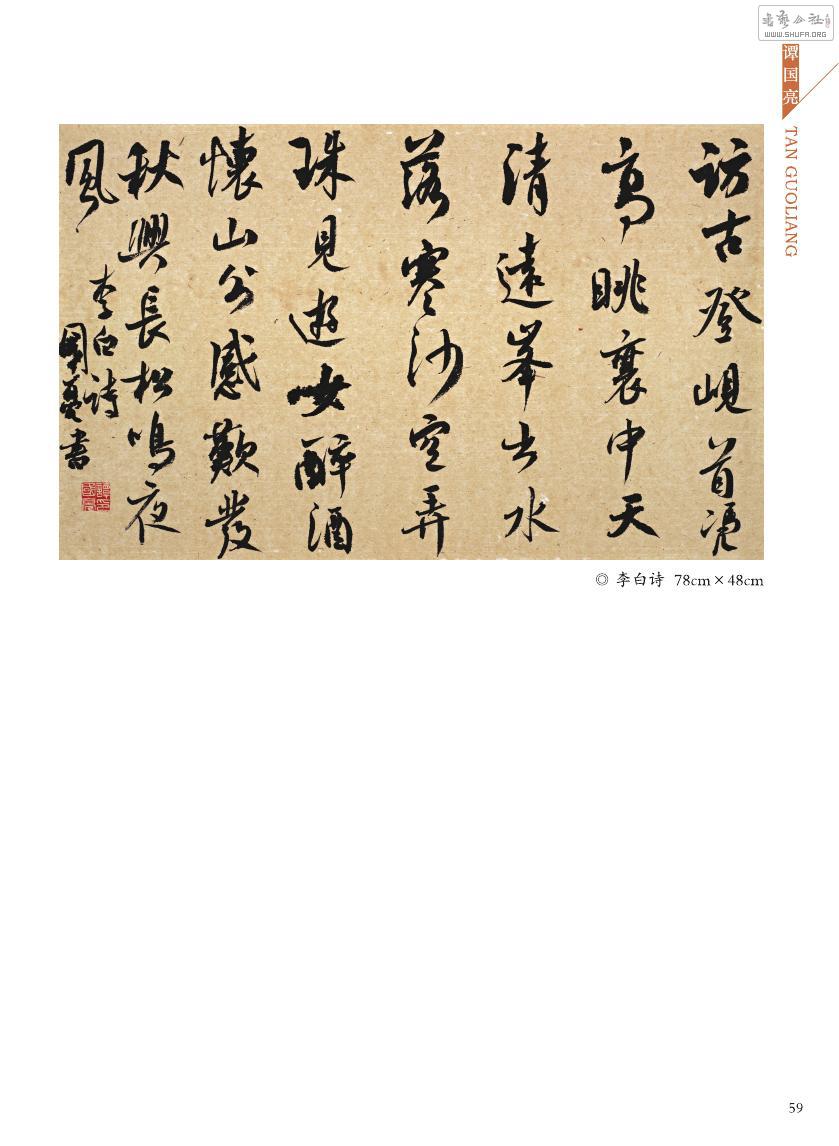 书艺公社
WWW.SHUFA.ORG
谭国亮
TAN GUOLIANG
訪古登峴首憑
高眺襄中天
清遠峯出水
落寒沙空弄
珠見遊女醉酒
懷山公感歎發
秋興長松鳴夜
風
李白詩
國書
◎ 李白诗 78cm×48cm
59